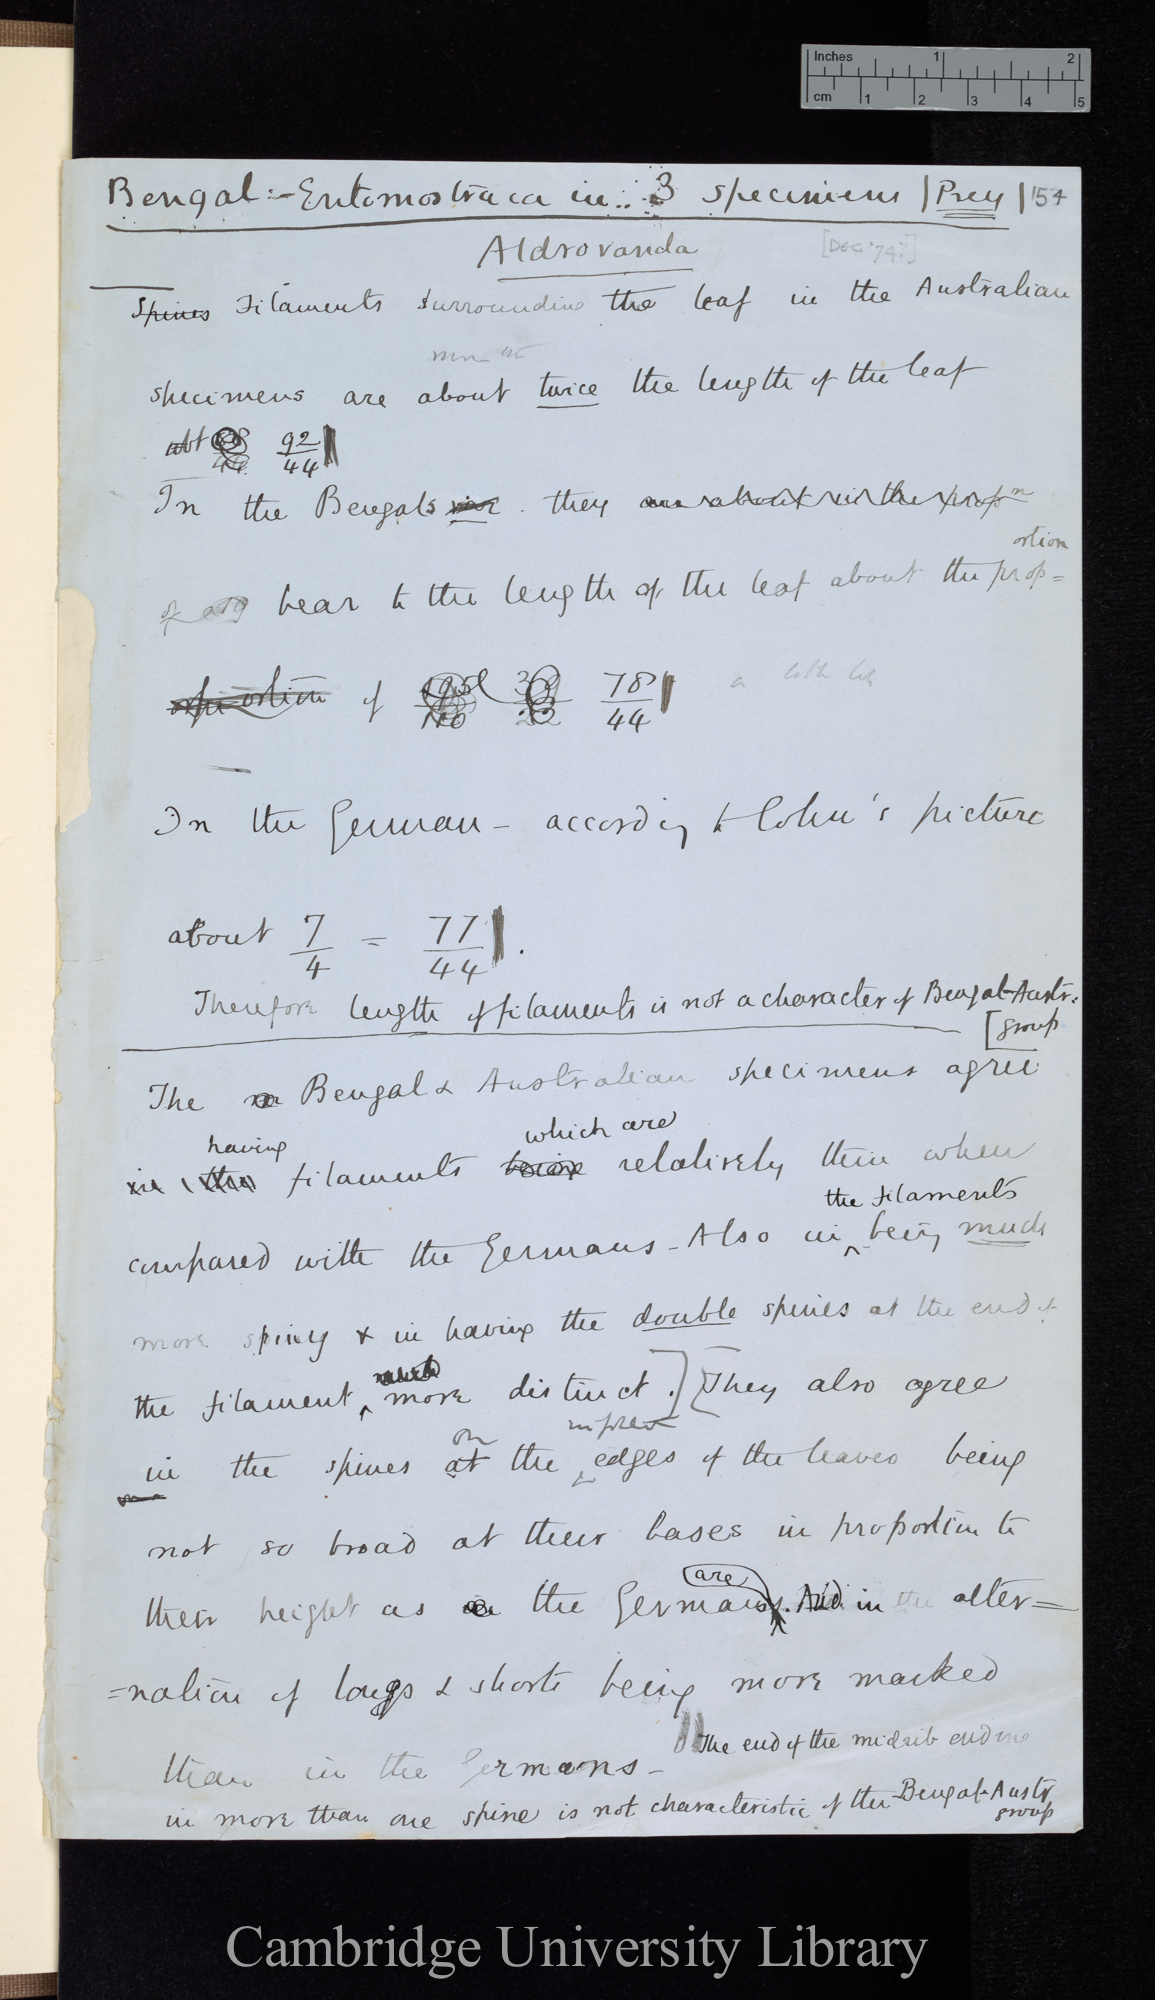 Inches 1 2
cm 1 2 3 4 5
Bengal:- Entomostraca in 3 specimens | Prey | 154
Aldrovanda [DEC '74?]
Spines Filaments surrounding the leaf in the Australian
specimens are about twice the length of the leaf
abt 92/44
In the Bengals they are about in the propn
ortion
bear to the length of the leaf about the prop=
ortion of 78/44
In the German - according to Cohn's picture
about 7/4 = 77/44.
Therefore length of filaments is not a character of Bengal-Austr:
[group
The Bengal & Australian specimens agree
having which are
in filaments being relatively thin when
the filaments
compared with the Germans - Also in being much
more spiny & in having the double spines at the end of
much
the filament, more distinct.] [They also agree
on
in the spines at the edges of the leaves being
not so broad at their bases in proportion to
are
their height as in the Germans. And in the alter=
=nation of longs & shorts being more marked
The end of the midrib ending
than in the Germans -
in more than one spine is not characteristic of the Bengal-Austr
group
Cambridge University Library